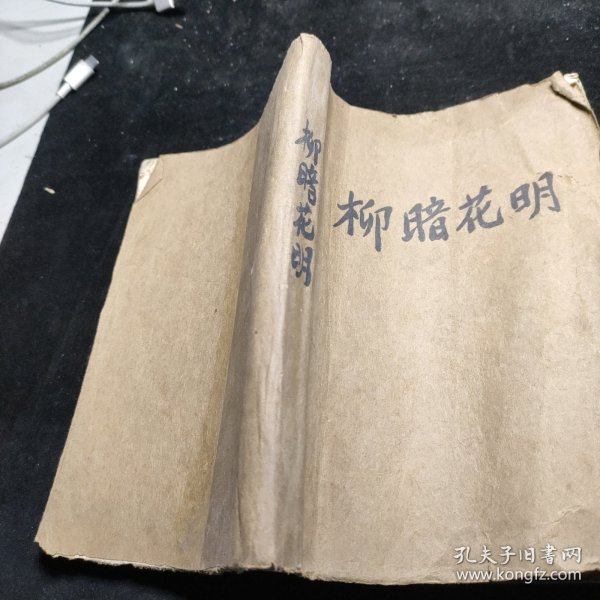 柳暗花明
柳暗花明
孔夫子旧书网
www.kongfz.com